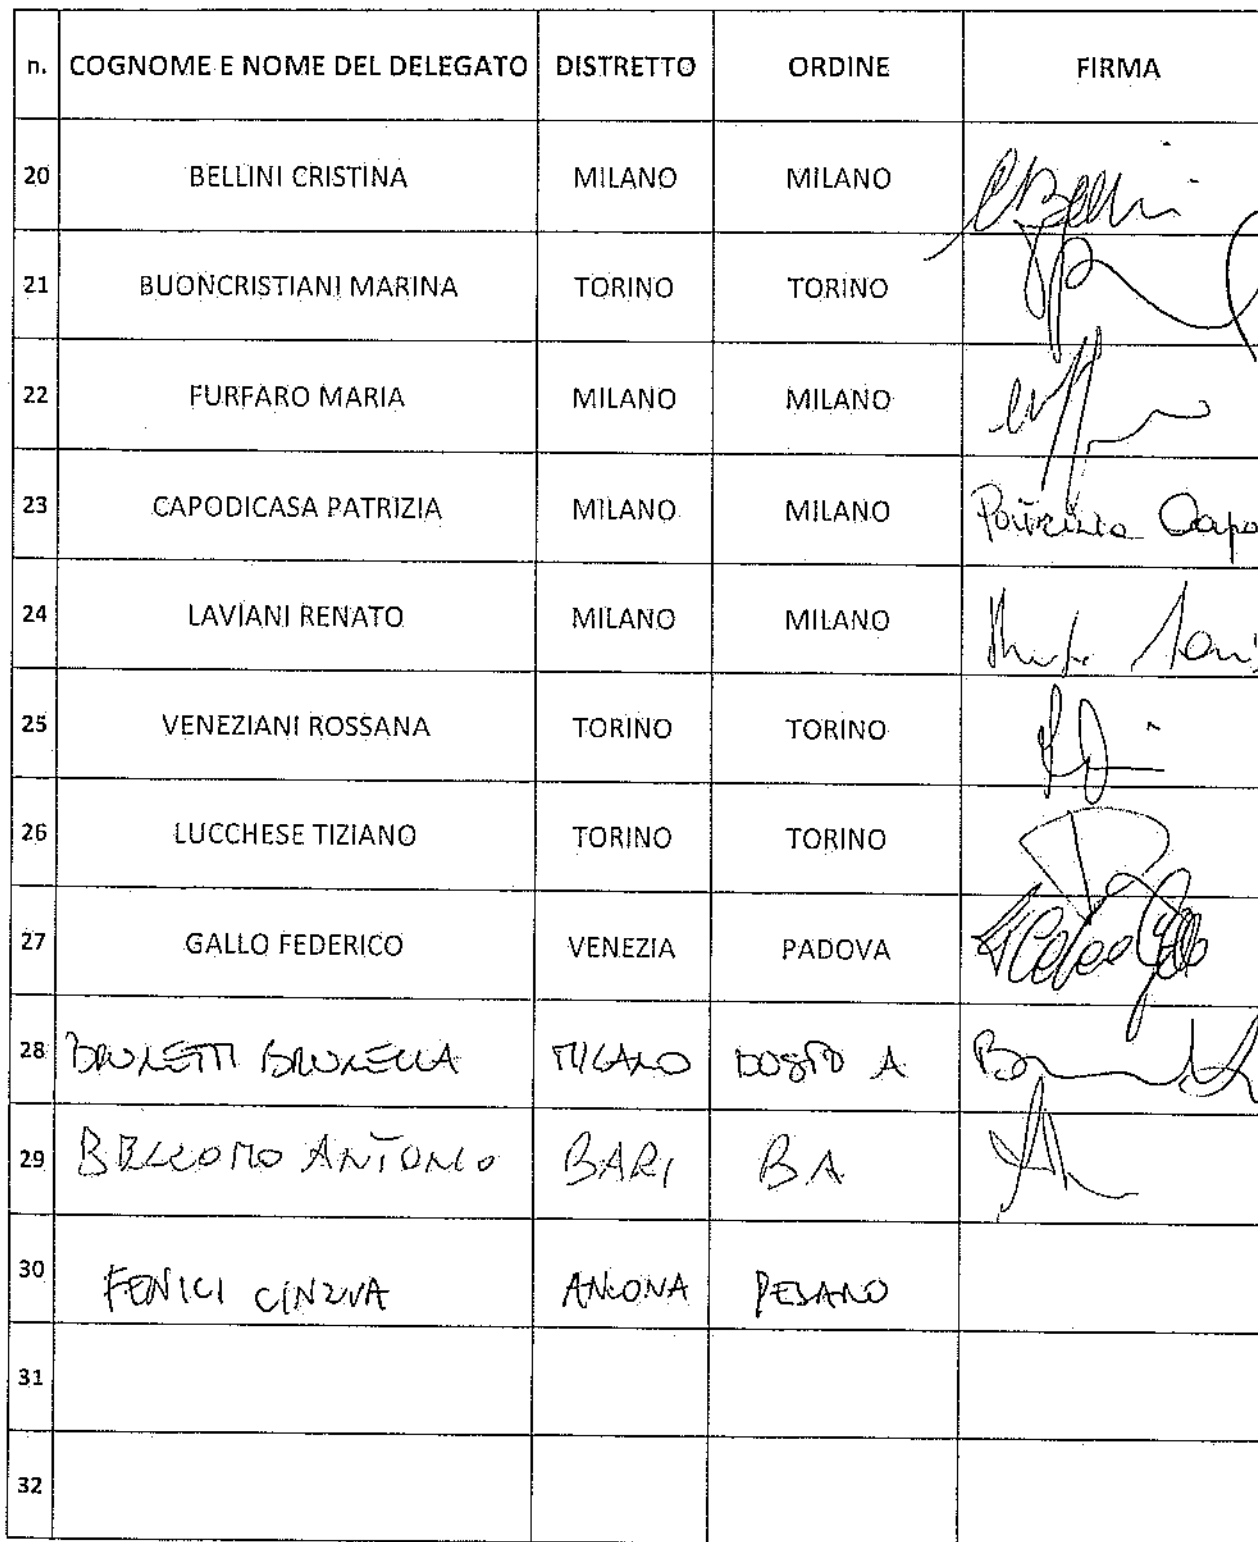 n. COGNOME E NOME DEL DELEGATO DISTRETTO ORDINE FIRMA
20 BELLINI CRISTINA MILANO MILANO CBellini
21 BUONCRISTIANI MARINA TORINO TORINO
22 FURFARO MARIA MILANO MILANO
23 CAPODICASA PATRIZIA MILANO MILANO Patrizia Capo
24 LAVIANI RENATO MILANO MILANO
25 VENEZIANI ROSSANA TORINO TORINO
26 LUCCHESE TIZIANO TORINO TORINO
27 GALLO FEDERICO VENEZIA PADOVA
28 BRUNETTI BRUNELLA MILANO A
29 BELLOMO ANTONIO BARI BA
30 FENICI CINZIA ANCONA PESARO
31
32